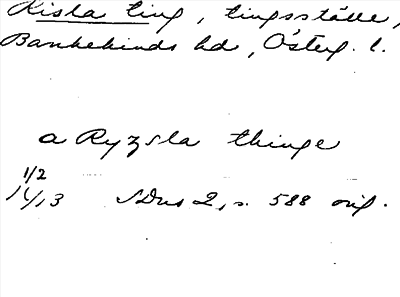 Kisla ting, tingsställe,
Bankekinds hd, Österg. l.
a Ryzsla thinge
1/2
1413 SDns 2, s. 588 orig.